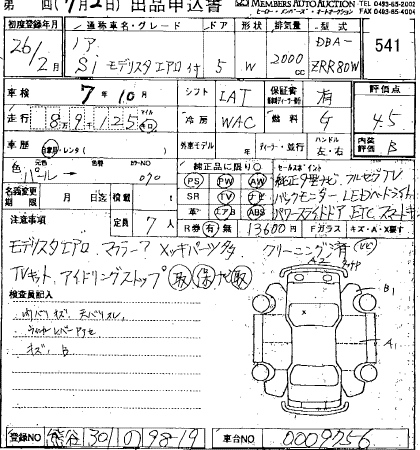 第 回(7月2日) 出品申込書 MEMBERS AUTO AUCTION TEL 0493-65-2002
ヒーロー・メンバーズ・オートオークション FAX 0493-65-4004
初度登録年月 通称車名・グレード ドア 形状 排気量 型式
26/2月 ノア Si モデリスタエアロ付 5 W 2000cc DBA-ZRR80W 541
車検 7年10月 シフト IAT 保証書 有 評価点
走行 8万9千125 マイル キロ 冷房 WAC 燃料 G 4.5
車歴 自家用・レンタ( ) 外車モデル 年 ディーラー・並行 ハンドル 左・右 内装評価 B
色 元色 パール 色替 カラーNO 070 純正品に限り○ セールスポイント
名義変更期限 月 日迄 積載 t PS PW AW 純正ナビ フルセグTV
SR TV ナビ バックモニター LEDヘッドライト
注意事項 定員 7人 革 エアB ABS パワースライドドア ETC スマートキー
R券 有・無 13600円 Fガラス キズ・A・X要す
モデリスタエアロ マフラー メッキパーツ クリーニング済
TVキット アイドリングストップ 取 保 取
検査員記入 A2 B1
内バリキズ 天バリスレ
A1
キズ B
登録NO 熊谷 301 の 98-19 車台NO 0009756